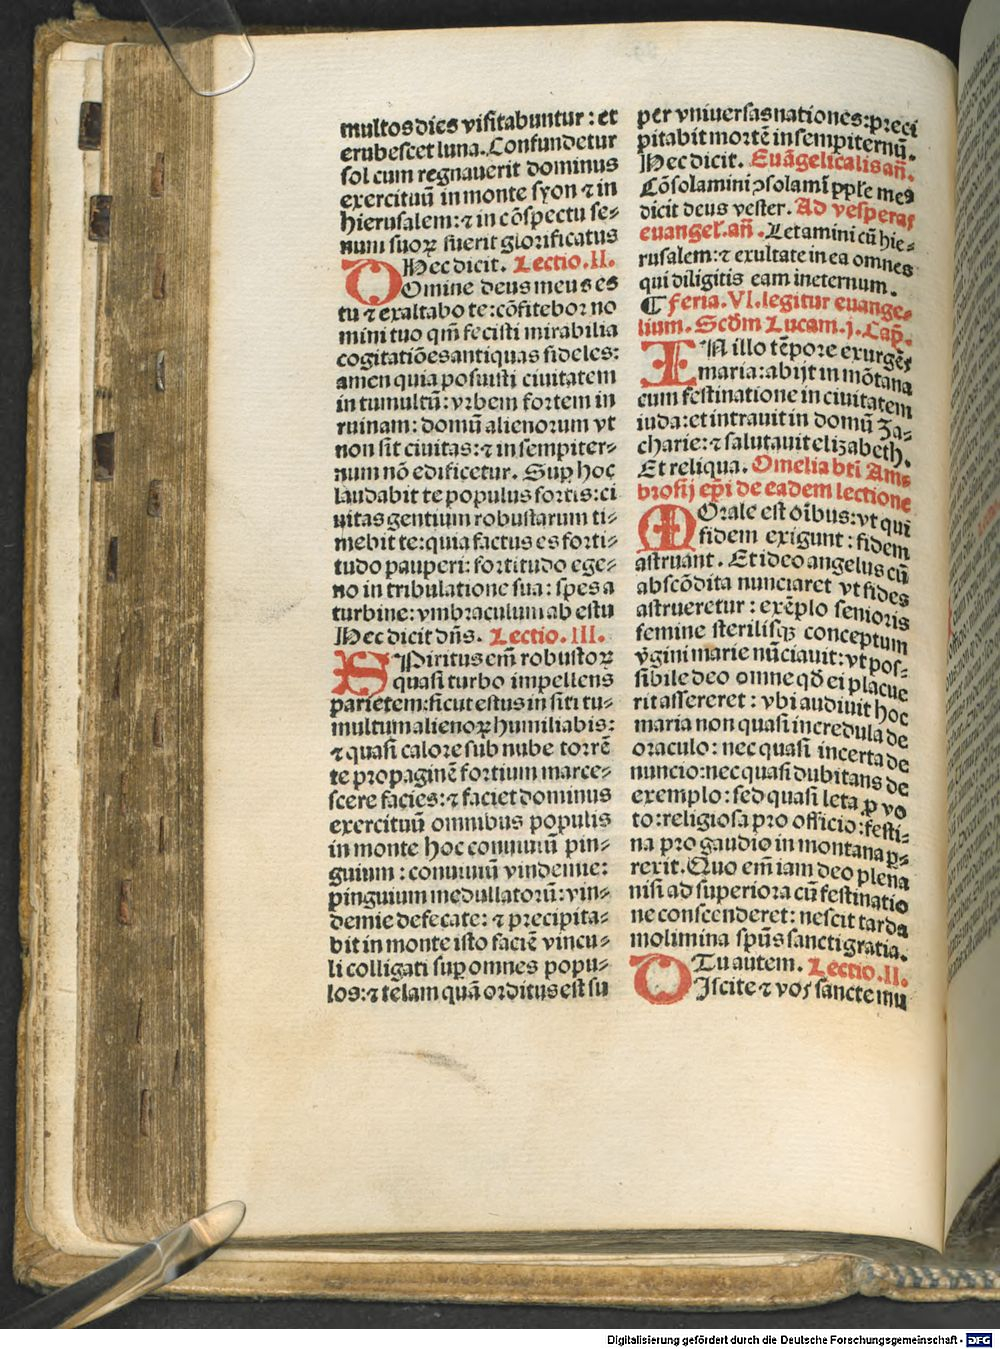 multos dies visitabuntur: et
erubescet luna. Confundetur
sol cum regnauerit dominus
exercituū in monte syon ⁊ in
hierusalem: ⁊ in cōspectu se⸗
num suoꝝ fuerit glorificatus
Hec dicit. Lectio. II.
DOmine deus meus es
tu ⁊ exaltabo te: cōfitebor no
mini tuo qm̄ fecisti mirabilia
cogitatiōes antiquas fideles:
amen quia posuisti ciuitatem
in tumultū: vrbem fortem in
ruinam: domū alienorum vt
non sit ciuitas: ⁊ in sempiter⸗
num nō edificetur. Suꝑ hoc
laudabit te populus fortis: ci
uitas gentium robustarum ti⸗
mebit te: quia factus es forti⸗
tudo pauperi: fortitudo ege⸗
no in tribulatione sua: spes a
turbine: vmbraculum ab estu
Hec dicit dn̄s. Lectio. III.
SPiritus em̄ robustoꝝ
quasi turbo impellens
parietem: sicut estus in siti tu⸗
multum alienoꝝ humiliabis:
⁊ quasi calore sub nube torrē
te propaginē fortium marce⸗
scere facies: ⁊ faciet dominus
exercituū omnibus populis
in monte hoc conuiuiū pin⸗
guium: conuiuiū vindemie:
pinguium medullatorū: vin⸗
demie defecate: ⁊ precipita⸗
bit in monte isto faciē vincu⸗
li colligati suꝑ omnes popu⸗
los: ⁊ telam quā orditus est su
per vniuersas nationes: preci
pitabit mortē in sempiternū.
Hec dicit. Euāgelicalis añ.
Cōsolamini ꝯsolamī pple meꝰ
dicit deus vester. Ad vesperas
euangel. añ. Letamini cū hie⸗
rusalem: ⁊ exultate in ea omnes
qui diligitis eam in eternum.
¶ feria. VI. legitur euange⸗
lium. Scd̄m Lucam. j. Cap̄.
IN illo tēpore exurgēs
maria: abijt in mōtana
cum festinatione in ciuitatem
iuda: et intrauit in domū Za⸗
charie: ⁊ salutauit elizabeth.
Et reliqua. Omelia bti Am⸗
brosij ep̄i de eadem lectione
MOrale est oībus: vt qui
fidem exigunt: fidem
astruant. Et ideo angelus cū
abscōdita nunciaret vt fides
astrueretur: exēplo senioris
femine sterilisqꝫ conceptum
v̄gini marie nūciauit: vt pos⸗
sibile deo omne qd̄ ei placue
rit assereret: vbi audiuit hoc
maria non quasi incredula de
oraculo: nec quasi incerta de
nuncio: nec quasi dubitans de
exemplo: sed quasi leta ꝓ vo
to: religiosa pro officio: festi⸗
na pro gaudio in montana ꝑ⸗
rexit. Quo em̄ iam deo plena
nisi ad superiora cū festinatio
ne conscenderet: nescit tarda
molimina spūs sancti gratia.
Tu autem. Lectio. II.
DIscite ⁊ vos sancte mu
Digitalisierung gefördert durch die Deutsche Forschungsgemeinschaft - DFG